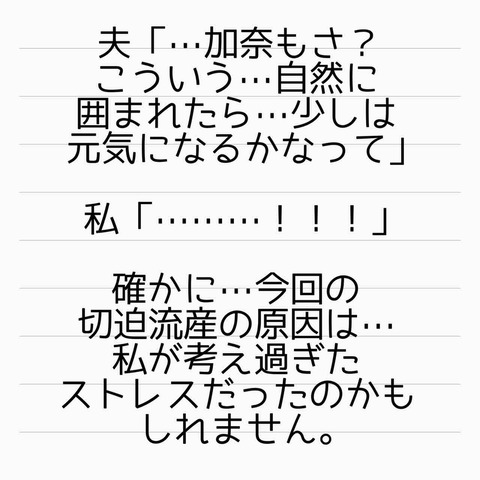 夫「…加奈もさ？
こういう…自然に
囲まれたら…少しは
元気になるかなって」
私「………！！！」
確かに…今回の
切迫流産の原因は…
私が考え過ぎた
ストレスだったのかも
しれません。